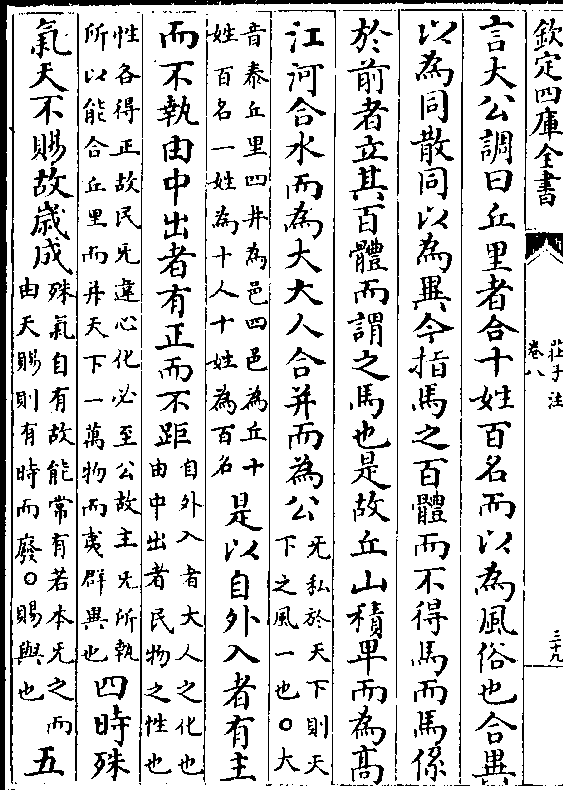 欽定四庫全書
莊子注
卷八
三十九
言大公調曰丘里者合十姓百名而以為風俗也合異
以為同散同以為異今指馬之百體而不得馬而馬係
於前者立其百體而謂之馬也是故丘山積卑而為髙
江河合水而為大大人合并而為公
无私於天下則天
下之風一也○大
音泰丘里四井為邑四邑為丘十
姓百名一姓為十人十姓為百名
是以自外入者有主
而不執由中出者有正而不距
自外入者大人之化也
由中出者民物之性也
性各得正故民无違心化必至公故主无所執
所以能合丘里而并天下一萬物而夷群異也
四時殊
氣天不賜故歳成
殊氣自有故能常有若本无之而
由天賜則有時而廢○賜與也
五